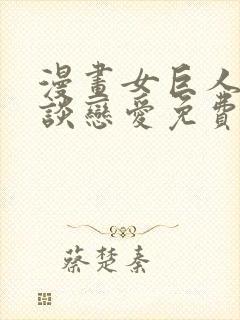 漫畫女巨人
談戀愛免費
蔡楚秦